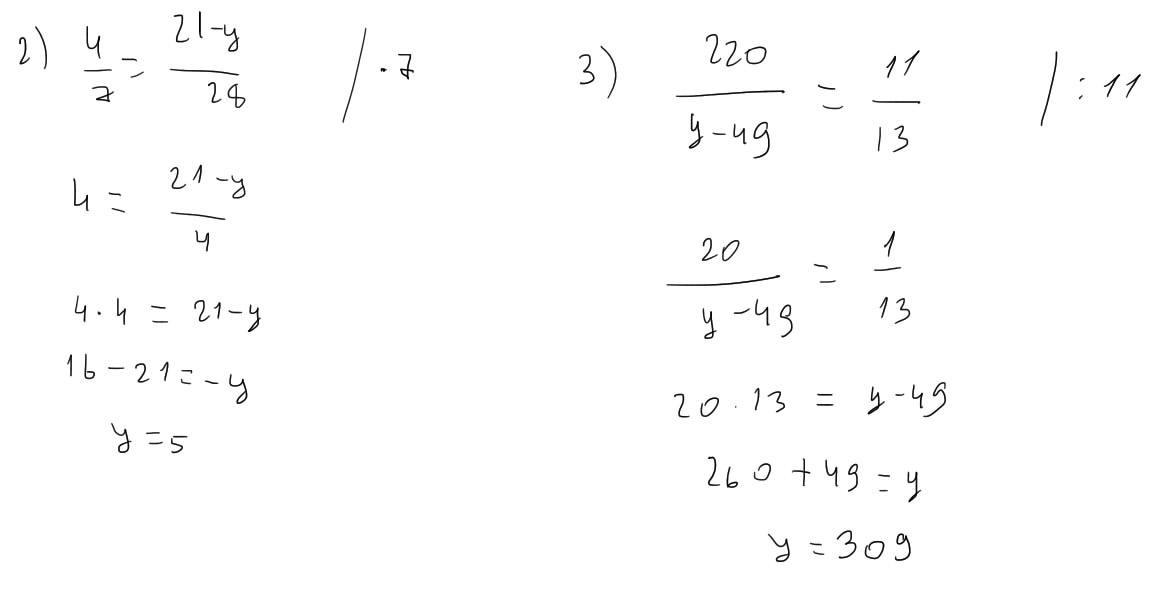 2) 4/7 = (21-y)/28 / ·7
4 = (21-y)/4
4·4 = 21-y
16-21=-y
y=5
3) 220/(y-49) = 11/13 / :11
20/(y-49) = 1/13
20·13 = y-49
260+49=y
y=309